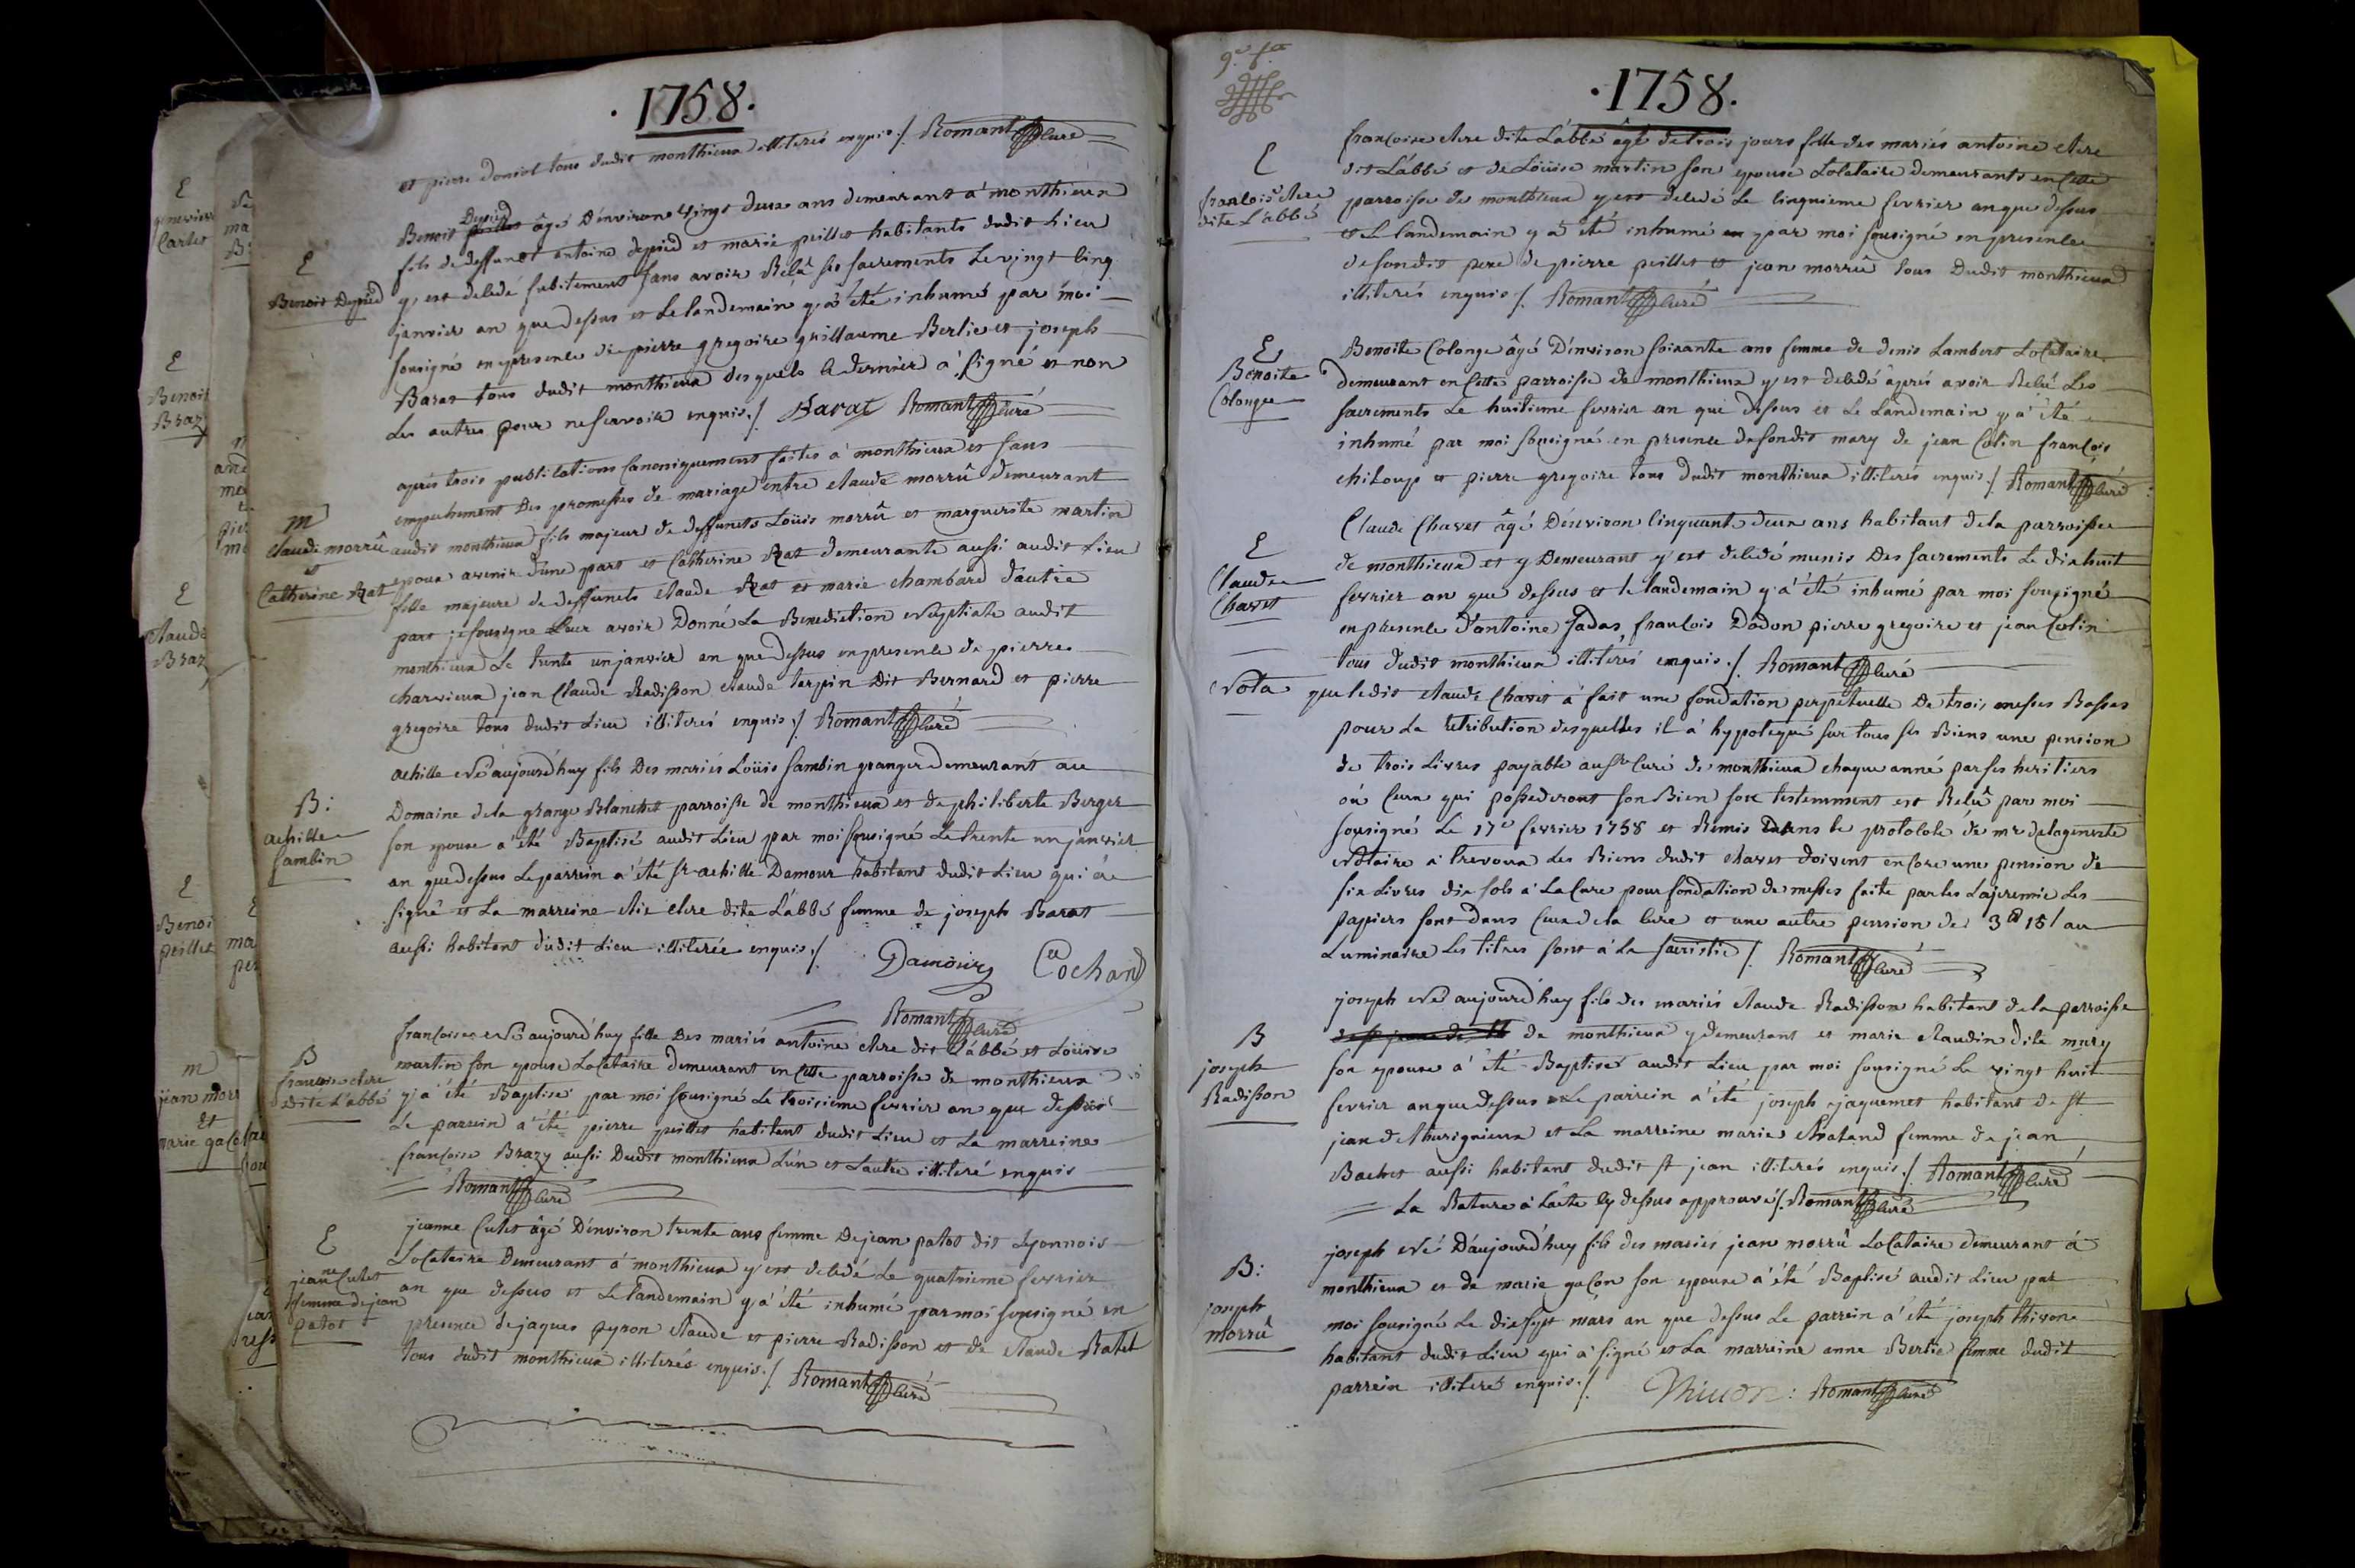 ·1758·
et pierre doniol tous dudit monthieux illiterés enquis ./. Romant Curé
E
Benoit Depied
Benoit Depied âgé d'environ vingt deux ans demeurant a monthieux
fils de deffunct antoine depied et marie peillet habitants dudit lieu
y est decedé subitement sans avoir Reçû ses sacrements le vingt cinq
janvier an que dessus et le landemain y a été inhumé par moi
sousigné en presence de pierre gregoire guillaume Berlie et joseph
Barat tous dudit monthieux desquels le dernier a signé et non
les autres pour ne scavoir enquis ./. Barat Romant Curé
m
Claude morrû
et
Catherine Rat
apres trois publications Canoniquement faites a monthieux et sans
empechement des promesses de mariage entre claude morrû demeurant
audit monthieux fils majeur de deffuncts Loüis morrû et marguerite martin
epoux avenir d'une part et Catherine Rat demeurante aussi audit lieu
fille majeure de deffuncts claude Rat et marie chambard d'autre
part je sousigne leur avoir Donné La Benediction Nuptiale audit
monthieux Le trente un janvier an que dessus en presence de pierre
charvieux jean Claude Radisson claude tarpin dit Bernard et pierre
gregoire tous dudit Lieu illiterés enquis ./. Romant Curé
B:
achille
Sambin
achille Né aujourd'huy fils des mariés Loüis Sambin granger demeurant au
Domaine de la grange Blanchet parroisse de monthieux et de philiberte Berger
son epouse a été Baptisé audit Lieu par moi sousigné Le trente un janvier
an que dessus Le parrein a été sr achille Damour habitant dudit Lieu qui a
signé et La marreine clere dite L'abbé femme de joseph Barat
aussi habitant dudit Lieu illiterée enquis ./.
Damour Cochard
Romant Curé
B
francoise clere
dite L'abbé
francoise Né aujourd'huy fille des mariés antoine clere dit L'abbé et Loüise
martin son epouse Locataire demeurant en cette parroisse de monthieux
y a été Baptisé par moi sousigné Le troisieme fevrier an que dessus
Le parrein a été pierre peillet habitant dudit Lieu et La marreine
francoise Brazy aussi dudit monthieux L'un et L'autre illiteré enquis
Romant Curé
E
jeanne Cutet
femme de jean
patot
jeanne Cutet âgé d'environ trente ans femme de jean patot dit Lyonnois
Locataire demeurant a monthieux y est decedé Le quatrieme fevrier
an que dessus et Le landemain y a été inhumé par moi sousigné en
presence de jaques pyron claude et pierre Radisson et de claude Ratet
tous dudit monthieux illiterés enquis ./. Romant Curé
·1758·
E
francoise clere
dite L'abbé
francoise clere dite L'abbé âgé de trois jours fille des mariés antoine clere
dit L'abbé et de Loüise martin son epouse Locataire demeurants en cette
parroisse de monthieux y est decedé Le cinquieme fevrier an que dessus
et Le landemain y a été inhumé par moi sousigné en presence
de sondit pere de pierre peillet et jean morrû tous Dudit monthieux
illiterés enquis ./. Romant Curé
E
Benoite
Colonge
Benoite Colonge âgé D'environ soixante ans femme de denis Lambert Locataire
demeurant en cette parroisse de monthieux y est decedé âprés avoir Reçû Les
sacrements Le huitieme fevrier an que dessus et Le landemain y a été
inhumé par moi sousigné en presence de sondit mary de jean Colin francois
chiloup et pierre gregoire tous dudit monthieux illiterés enquis ./. Romant Curé
E
Claude
Chavet
Claude Chavet âgé D'environ cinquante deux ans habitant de la parroisse
de monthieux et y Demeurant y est decedé munis Des sacrements Le dix huit
fevrier an que dessus et le landemain y a été inhumé par moi sousigné
en presence d'antoine Jadas, francois Dodon pierre gregoire et jean Colin
tous dudit monthieux illiterés enquis ./. Romant Curé
Nota que ledit claude Chavet a fait une fondation perpetuelle De trois messes Basses
pour La retribution desquelles il a hypotequé sur tous ses Biens une pension
de trois Livres payable au Sr Curé de monthieux chaque anné par ses heritiers
où Ceux qui possederont son Bien son testemment est Reçû par moi
sousigné Le 17e fevrier 1758 et Remis Dans le protolole de mr delageneste
Notaire a Trevoux Les Biens dudit chavet doivent encore une pension de
six Livres dix sols a La Cure pour fondation de messes faite par les Lajeremie Les
papiers sont dans Ceux de la Cure et une autre pension de 3# 15s au
Luminaire Les titres sont a La sacristie ./. Romant Curé
B
joseph
Radisson
joseph Né aujourd'huy fils des mariés claude Radisson habitant de la parroisse
de monthieux y demeurant et marie claudin dite mury
son epouse a été Baptisé audit Lieu par moi sousigné Le vingt huit
fevrier an que dessus Le parrein a été joseph jaquemet habitant de st
jean de thurignieux et La marreine marie chatand femme de jean
Bachet aussi habitant dudit st jean illiterés enquis ./. Romant Curé
La Rature a L'acte cy dessus approuvé ./. Romant Curé
B:
joseph
morrû
joseph Né D'aujourd'huy fils des mariés jean morrû Locataire demeurant a
monthieux et de marie gacon son epouse a été Baptisé audit Lieu par
moi sousigné Le dix sept mars an que dessus Le parrein a été joseph thivon
habitant dudit Lieu qui a signé et La marreine anne Berlie femme dudit
parrein illiteré enquis ./. Thivon : Romant Curé